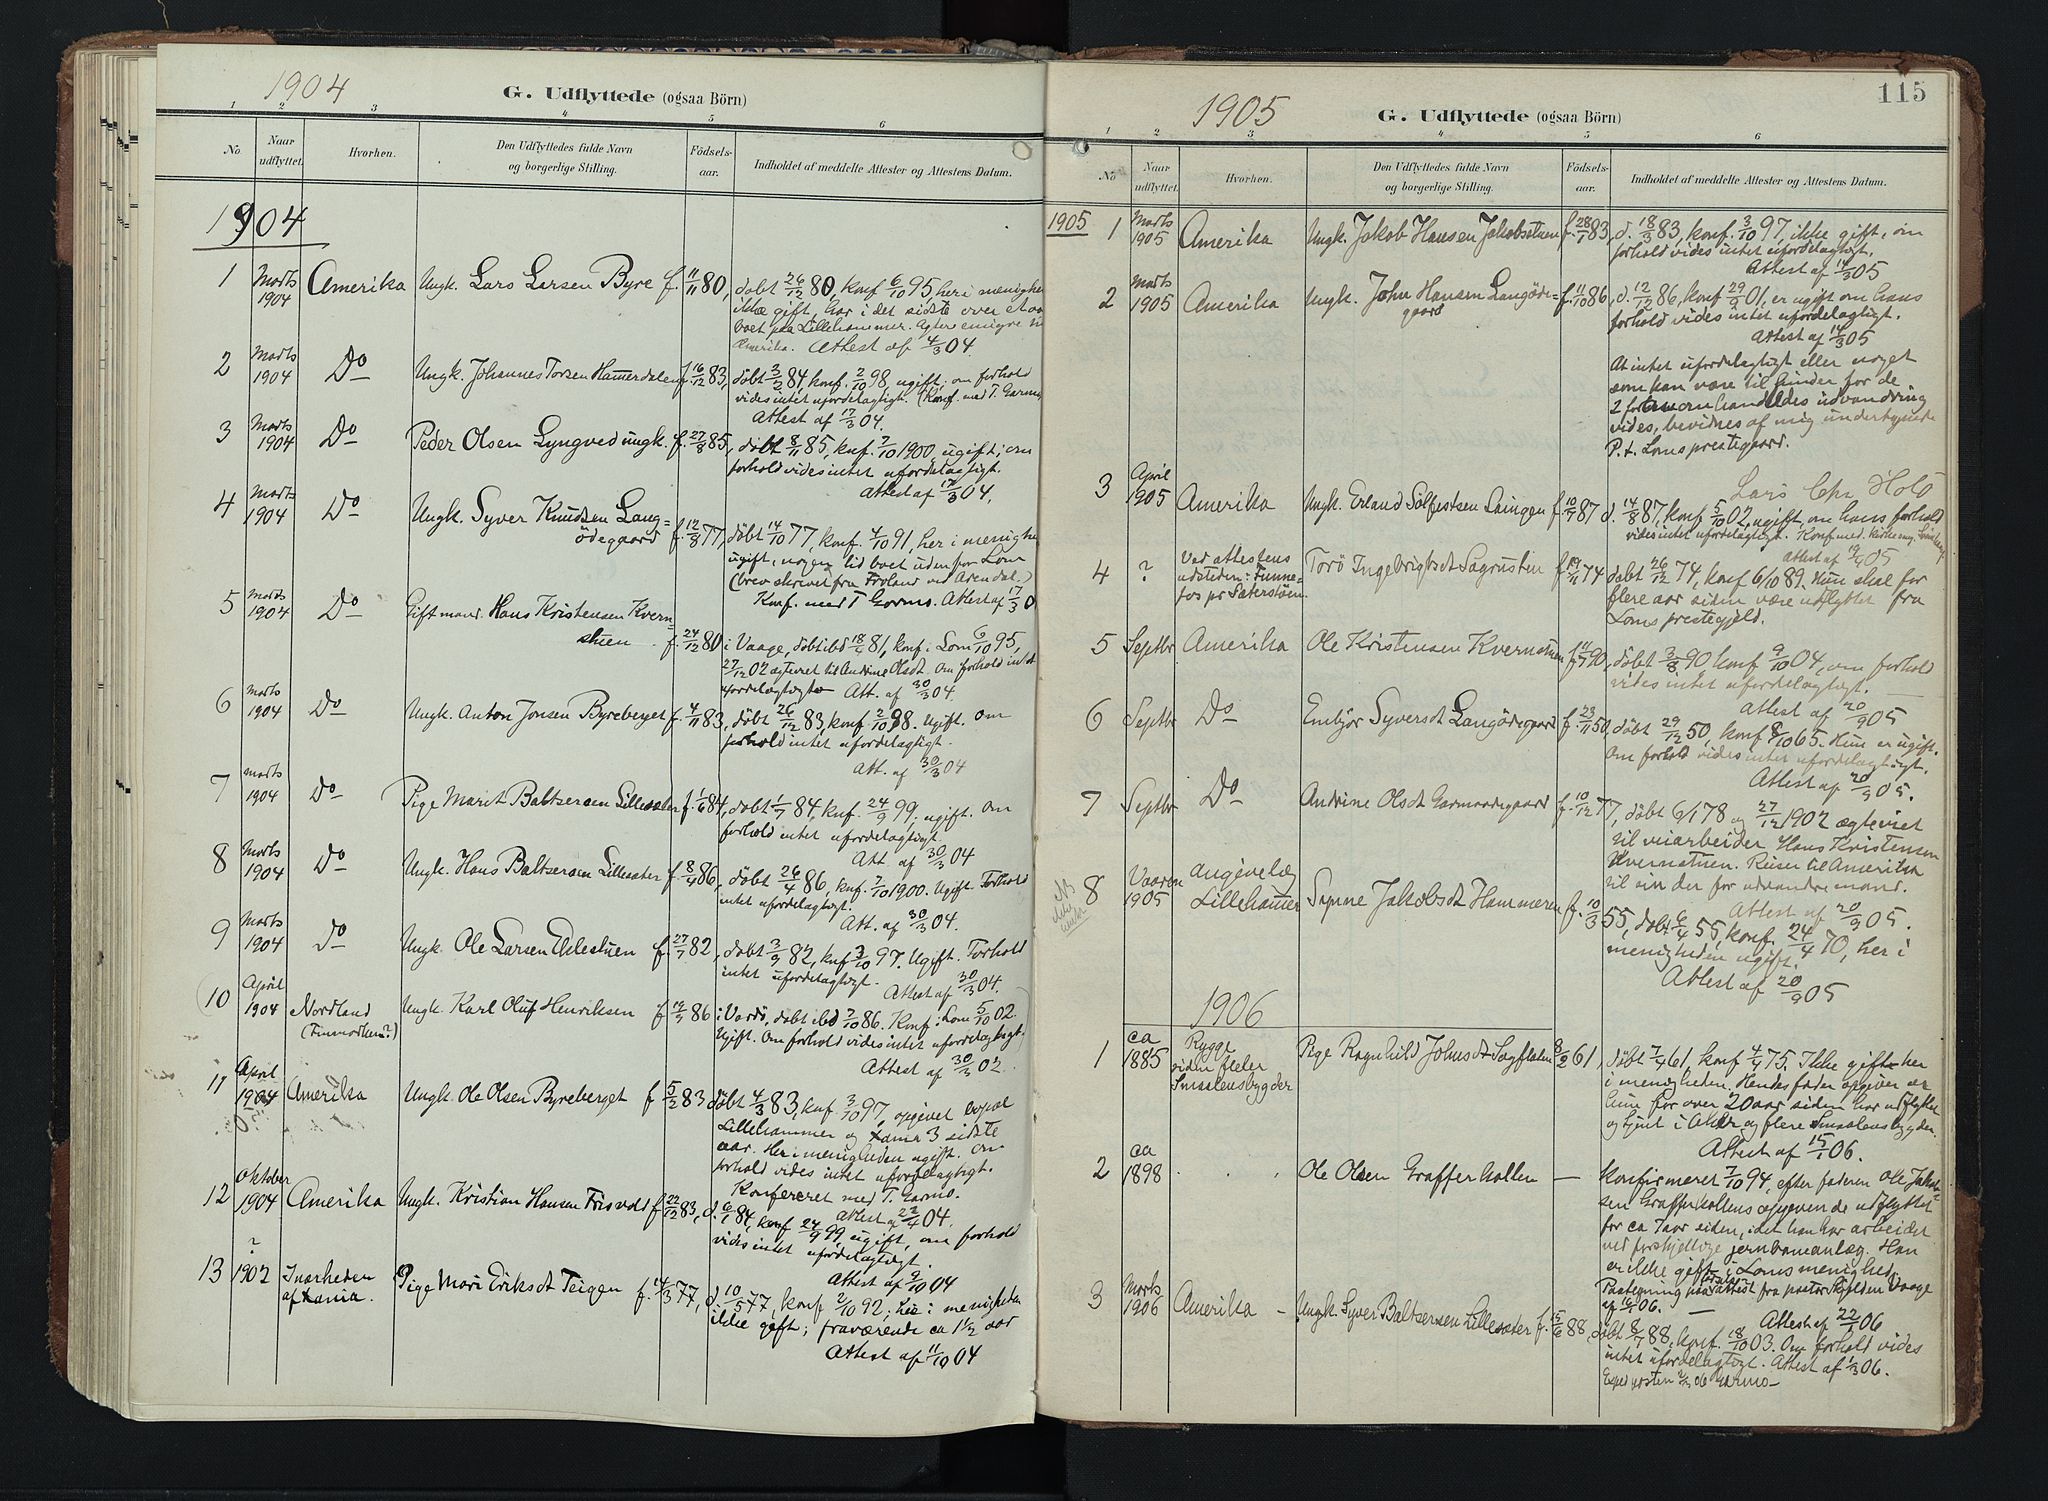 1904
G. Udflyttede (ogsaa Börn)
1 2 3 4 5 6
No.
Naar udflyttet.
Hvorhen.
Den Udflyttedes fulde Navn og borgerlige Stilling.
Födsels-aar.
Indholdet af meddelte Attester og Attestens Datum.
1904
1 Marts 1904 Amerika Ungk. Lars Larsen Byre f. 11/11 80, döbt 26/12 80, konf 6/10 95, her i menighe
ikke gift, har i det sidste over et aar
boet paa Lillehammer. Agter emigre til
Amerika. Attest af 4/3 04.
2 Marts 1904 Do Ungk. Johannes Torsen Hamerdalen f. 16/12 83, döbt 3/2 84, konf. 2/10 98, ugift; om forhold
vides intet ufordelagtigt. (Konf. med T. Garmo
Attest af 17/3 04.
3 Marts 1904 Do Peder Olsen Lyngved ungk. f. 27/8 85, döbt 8/11 85, konf. 7/10 1900, ugift; om
forhold vides intet ufordelagtigt.
Attest af 17/3 04.
4 Marts 1904 Do Ungk. Syver Knudsen Lang=
ödegaard f. 12/8 77, döbt 14/10 77, konf. 4/10 91, her i menighe
ugift, nogen tid boet udenfor Lom
(brev skrevet fra Fröland ved Arendal.)
Konf. med T Garmo. Attest af 17/3 0
5 Marts 1904 Do Gift mand. Hans Kristensen Kvern=
stuen f. 24/12 80 i Vaage, döbt ibd 18/4 81, konf. i Lom 6/10 95,
27/12 02 ægteviet til Andrine Olsdt. Om forhold intet
ufordelagtigt Att. af 30/3 04
6 Marts 1904 Do Ungk. Anton Jonsen Byreberget f. 4/11 83, döbt 26/12 83, konf. 2/10 98. Ugift. Om
forhold intet ufordelagtigt.
Att. af 30/3 04
7 Marts 1904 Do Pige Marit Baltzersen Lillesæter f. 1/6 84, döbt 1/7 84, konf. 24/9 99, ugift. Om
forhold intet ufordelagtigt.
Att. af 30/3 04
8 Marts 1904 Do Ungk. Hans Baltzersen Lillesæter f. 8/4 86, döbt 26/4 86, konf. 7/10 1900. Ugift. Forhold
intet ufordelagtigt.
Att. af 30/3 04.
9 Marts 1904 Do Ungk. Ole Larsen f. 27/7 82, döbt 3/9 82, konf 3/10 97. Ugift. Forhold
intet ufordelagtigt.
Attest af 30/3 04.
10 April 1904 Nordland (Finmarken?) Ungk. Karl Oluf Henriksen f 19/7 86 i Vardö, döbt ibd 7/10 86. Konf. i Lom 5/10 02.
Ugift. Om forhold vides intet ufordelagtigt.
Attest af 30/3 02.
11 April 1904 Amerika Ungk. Ole Olsen Byreberget f 5/2 83 döbt 4/3 83, konf. 3/10 97, opgivet bopæl
Lillehammer og 3 sidste
aar. Her i menigheden ugift. Om
forhold vides intet ufordelagtigt.
Konfereret med T. Garmo.
Attest af 22/4 04.
12 Oktober 1904 Amerika Ungk. Kristian Hansen Frisvold f 22/12 83, d. 6/1 84, konf 24/9 99, ugift, om forhold
vides intet ufordelagtigt.
Attest af 9/10 04
13 ? 1902 I nærheden af Pige Mari Eriksdt Teigen f. 14/3 77, d. 10/5 77, konf 2/10 92; her i menigheden
ikke gift; fraværende ca 1½ aar
Attest af 11/10 04
115
1905
G. Udflyttede (ogsaa Börn)
1 2 3 4 5 6
No
Naar udflyttet.
Hvorhen.
Den Udflyttedes fulde Navn og borgerlige Stilling.
Födsels-aar.
Indholdet af meddelte Attester og Attestens Datum.
1905
1 Marts 1905 Amerika Ungk. Jakob Hansen Jakobstuen f. 28/1 83, d. 18/3 83, konf. 3/10 97, ikke gift, om
forhold vides intet ufordelagtigt.
Attest af 14/3 05
2 Marts 1905 Amerika Ungk. John Hansen Langöde=
gaard f. 11/10 86, d. 12/12 86, konf 29/9 01, er ugift om hans
forhold vides intet ufordelagtigt.
Attest af 14/3 05
At intet ufordelagtigt eller noget
som kan være til hinder for de
2 foranomhandledes udvandring
vides, bevidnes af mig undertegnede
P.t. Loms prestegaard.
Lars Chr. Holö
3 April 1905 Amerika Ungk. Erland Solfestsen f. 10/7 87 d. 14/8 87, konf 5/10 02, ugift, om hans forhold
vides intet ufordelagtigt. Konf. med
Attest af 19/4 05
4 ? Ved attestens udsteden: Funne=
fos pr Sæterstöen Torö Ingebrigtsdt Sagrusten f 19/11 74 döbt 26/12 74, konf 6/10 89. Hun skal for
flere aar siden være udflyttet fra
Loms prestegjeld.
5 Septbr Amerika Ole Kristensen Kvernstuen f 11/7 90, döbt 3/8 90 konf 9/10 04, om forhold
vides intet ufordelagtigt.
Attest af 20/9 05
6 Septbr Do Embjör Syversdt Langödegaard f. 23/11 50, döbt 29/12 50, konf 8/10 65. Hun er ugift.
Om forhold vides intet ufordelagtigt.
Attest af 20/9 05.
7 Septbr Do Andrine Olsdt Garmosdegaard f. 10/12 77, döbt 6/1 78 og 27/12 1902 ægteviet
til veiarbeider Hans Kristensen
Kvernstuen. Reiser til Amerika
til sin der for udvandrede mand.
Attest af 20/9 05.
NB ikke
8 Vaaren 1905 angivelig Lillehamer Synne Jakobsdt Hammeren f. 10/3 55, döbt 6/4 55, konf. 24/4 70, her i
menigheden ugift.
Attest af 20/9 05
1906
1 ca 1885 Rygge siden flere Smaalensbygder Pige Ragnhild Johnsdt Sagflaten 8/2 61, döbt 7/4 61, konf 4/4 75. Ikke gift her
i menigheden. Hendes fader opgiver at
hun for over 20 aar siden har udflyttet
og tjent i og flere Smaalensbygder.
Attest af 15/1 06.
2 ca 1898 Ole Olsen Grafferkallen — Konfirmeret 7/10 94, efter faderen Ole Jakob=
sen Grafferkallens opgivende udflyttet
for ca 7 aar siden, idet han har arbeidet
ved forskjellige jernbaneanlæg. Han
er ikke gift i Loms menighed.
Paategning paa attest fra pastor Skjelden Vaage
af 16/1 06. — Attest af 22/1 06
3 Marts 1906 Amerika — Ungk. Syver Baltzersen Lillesæter f. 15/6 88, döbt 8/7 88, konf. 18/10 03. Om forhold vides
intet ufordelagtigt. Attest af 1/3 06.